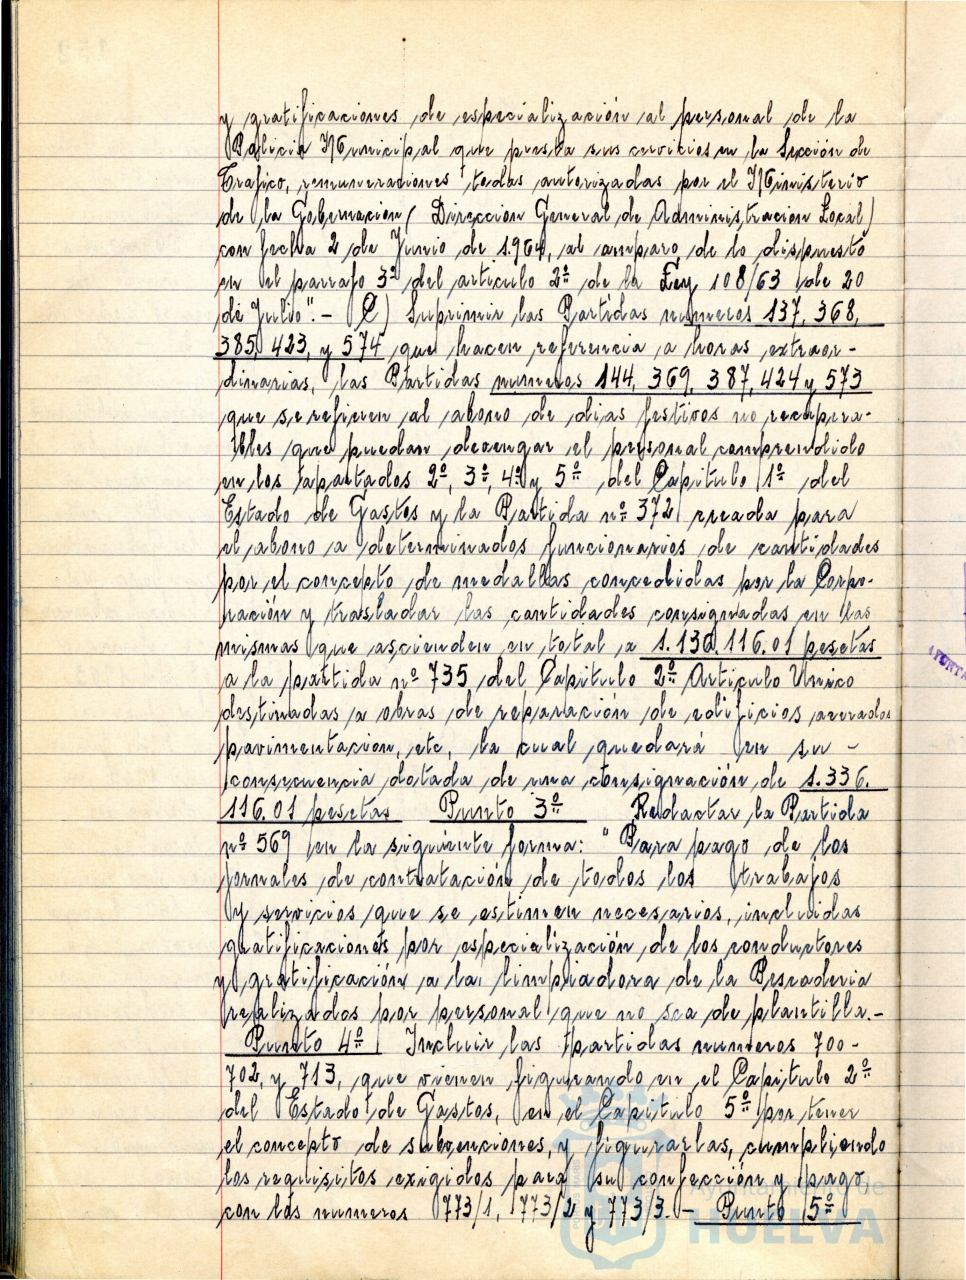 y gratificaciones de especialización al personal de la
Policia Municipal que presta sus servicios en la Sección de
Trafico, remuneraciones todas autorizadas por el Ministerio
de la Gobernacion (Dirección General de Administración Local)
con fecha 2 de Junio de 1.964, al amparo de lo dispuesto
en el parrafo 3º del articulo 2º de la Ley 108/63 de 20
de Julio".- C) Suprimir las Partidas numeros 137, 368,
385, 423, y 574 que hacen referencia a horas extraor-
dinarias, las Partidas numeros 144, 369, 387, 424 y 573
que se refieren al abono de dias festivos no recupera-
bles que puedan devengar el personal comprendido
en los apartados 2º, 3º, 4º y 5º del Capitulo 1º del
Estado de Gastos y la Partida nº 372 creada para
el abono a determinados funcionarios de cantidades
por el concepto de medallas concedidas por la Corpo-
ración y trasladar las cantidades consignadas en las
mismas que ascienden en total a 1.136.116.01 pesetas
a la partida nº 735 del Capitulo 2º Articulo Unico
destinadas a obras de reparación de edificios, acerados
pavimentacion, etc, la cual quedará en su -
consecuencia dotada de una consignación de 1.336.
116.01 pesetas Punto 3º Redactar la Partida
nº 569 en la siguiente forma: "Para pago de los
jornales de contratación de todos los trabajos
y servicios que se estimen necesarios, incluidas
gratificaciones por especialización de los conductores
y gratificación a la limpiadora de la Pescaderia
realizados por personal que no sea de plantilla.-
Punto 4º Incluir las partidas numeros 700-
702, y 713, que vienen figurando en el Capitulo 2º
del Estado de Gastos, en el Capitulo 5º por tener
el concepto de subvenciones, y figurarlas, cumpliendo
los requisitos exigidos para su confección y pago
con los numeros 773/1, 773/2 y 773/3. - Punto 5º
Ayuntamiento de
HUELVA